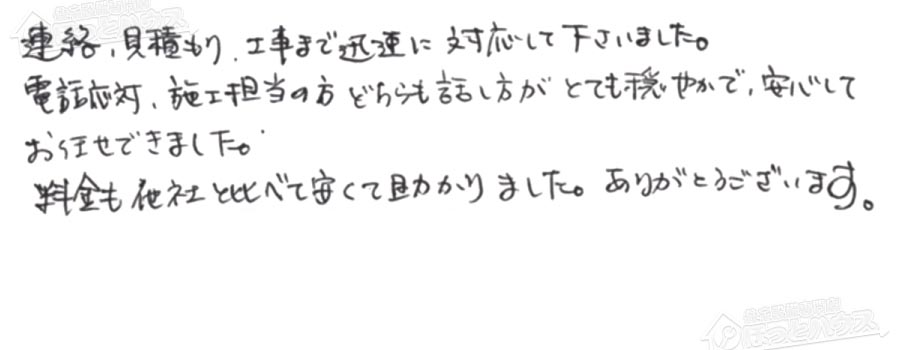 連絡、見積もり、工事まで迅速に対応して下さいました。
電話応対、施工担当の方どちらも話し方がとても穏やかで、安心して
お任せできました。
料金も他社と比べて安くて助かりました。ありがとうございます。
ほっとハウス
ほっとハウス